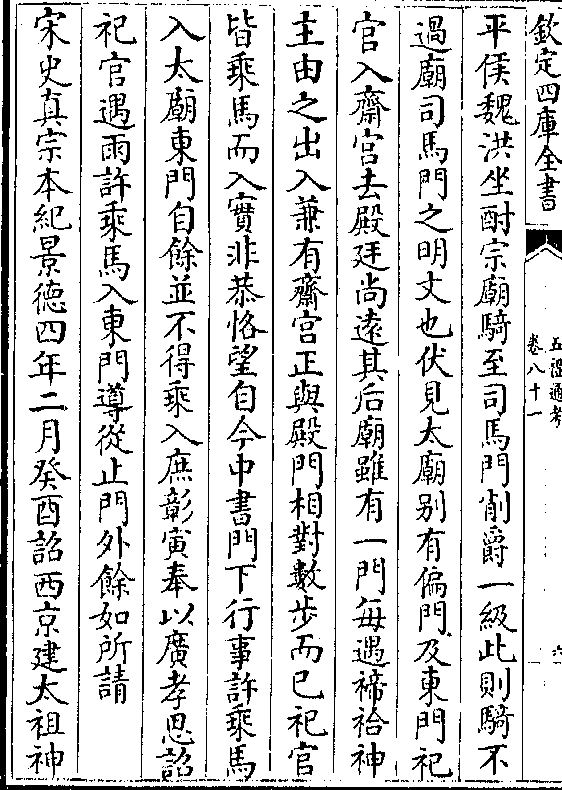 欽定四庫全書
五禮通考
卷八十一
六
平侯魏洪坐酎宗廟騎至司馬門削爵一級此則騎不
過廟司馬門之明文也伏見太廟别有偏門及東門祀
官入齋宫去殿廷尚遠其后廟雖有一門每遇禘祫神
主由之出入兼有齋宫正與殿門相對數步而已祀官
皆乘馬而入實非恭恪望自今中書門下行事許乘馬
入太廟東門自餘並不得乘入庶彰寅奉以廣孝思詔
祀官遇雨許乘馬入東門導從止門外餘如所請
宋史真宗本紀景德四年二月癸酉詔西京建太祖神